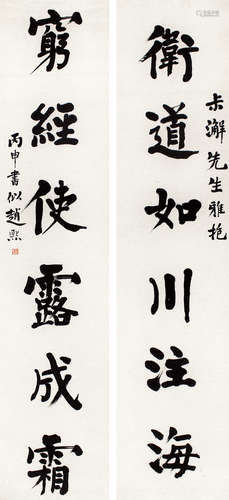 衛道如川注海
先生雅
窮經使露成霜
丙申書似趙熙